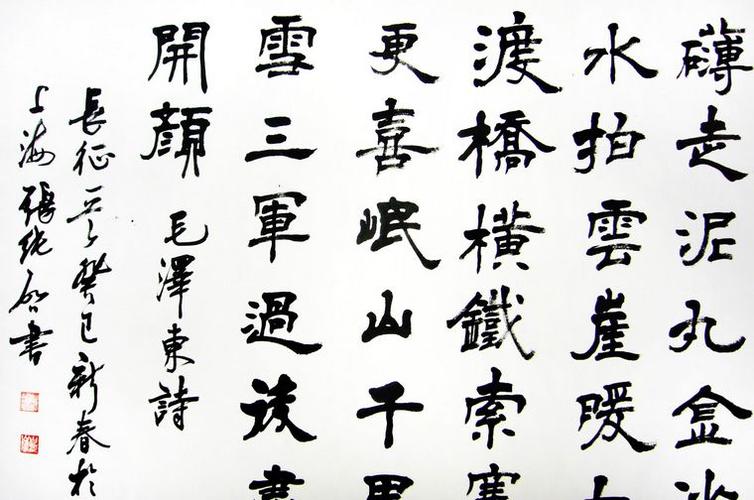 礴走泥丸金沙
水拍雲崖暖
渡橋橫鐵索寒
更喜岷山千里
雪三軍過後盡
開顏 毛澤東詩
長征一首癸巳新春於
上海張純書